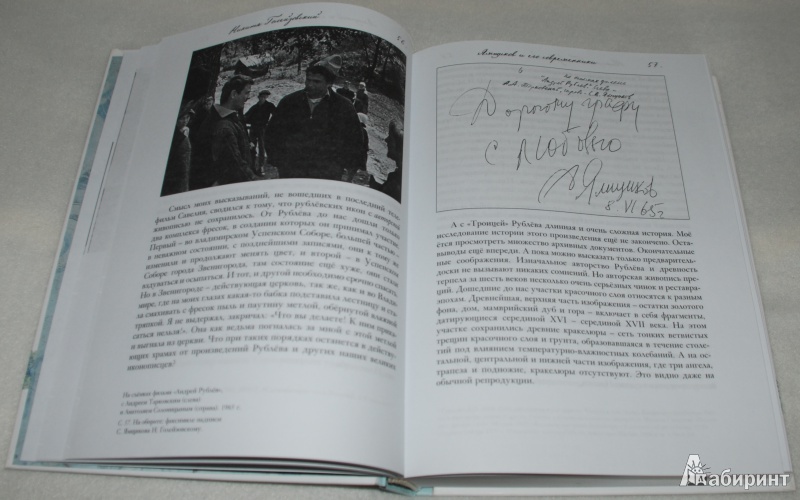 Ямщиков и его современники
57
Дорогому графу
с любовью
СЯмщиков
8 VI 65 г
Смысл моих высказываний, не вошедших в последний теле-
фильм Савелия, сводился к тому, что рублёвских икон с авторской
живописью не сохранилось. От Рублёва до нас дошли только
два комплекса фресок, в создании которых он принимал участие.
Первый – во владимирском Успенском Соборе, большей частью –
в неважном состоянии, с позднейшими записями, они к тому же
изменили и продолжают менять цвет, и второй – в Успенском
Соборе города Звенигорода, там состояние ещё хуже, они стали
вздуваться и осыпаться. И тот, и другой необходимо срочно спасать.
Но в Звенигороде – действующая церковь, так же, как и во Влади-
мире, где на моих глазах какая-то бабка подставила лестницу и ста-
ла смахивать с фресок пыль и паутину метлой, обёрнутой влажной
тряпкой. Я не выдержал, закричал: «Что вы делаете! К ним прика-
саться нельзя!». Она как ведьма погналась за мной с этой метлой
и выгнала из церкви. Что при таких порядках останется в действу-
ющих храмах от произведений Рублёва и других наших великих
иконописцев?
На съёмках фильма «Андрей Рублёв»,
с Андреем Тарковским (слева)
и Анатолием Солоницыным (справа). 1965 г.
С. 57. На обороте: факсимиле надписи
С. Ямщикова Н. Голейзовскому.
А с «Троицей» Рублёва длинная и очень сложная история. Моё
исследование истории этого произведения ещё не закончено. Оста-
ётся просмотреть множество архивных документов. Окончательные
выводы ещё впереди. А пока можно высказать только предваритель-
ные соображения. Изначальное авторство Рублёва и древность
доски не вызывают никаких сомнений. Но авторская живопись пре-
терпела за шесть веков несколько очень серьёзных чинок и реставра-
ций. Дошедшие до нас участки красочного слоя относятся к разным
эпохам. Древнейшая, верхняя часть изображения – остатки золотого
фона, дом, мамврийский дуб и гора – включает в себя фрагменты,
датирующиеся серединой XVI – серединой XVII века. На этом
участке сохранились древние кракелюры – сеть тонких ветвистых
трещин красочного слоя и грунта, образовавшаяся в течение столе-
тий под влиянием температурно-влажностных колебаний. А на ос-
тальной, центральной и нижней части изображения, где три ангела,
трапеза и подножие, кракелюры отсутствуют. Это видно даже на
обычной репродукции.
Лабиринт